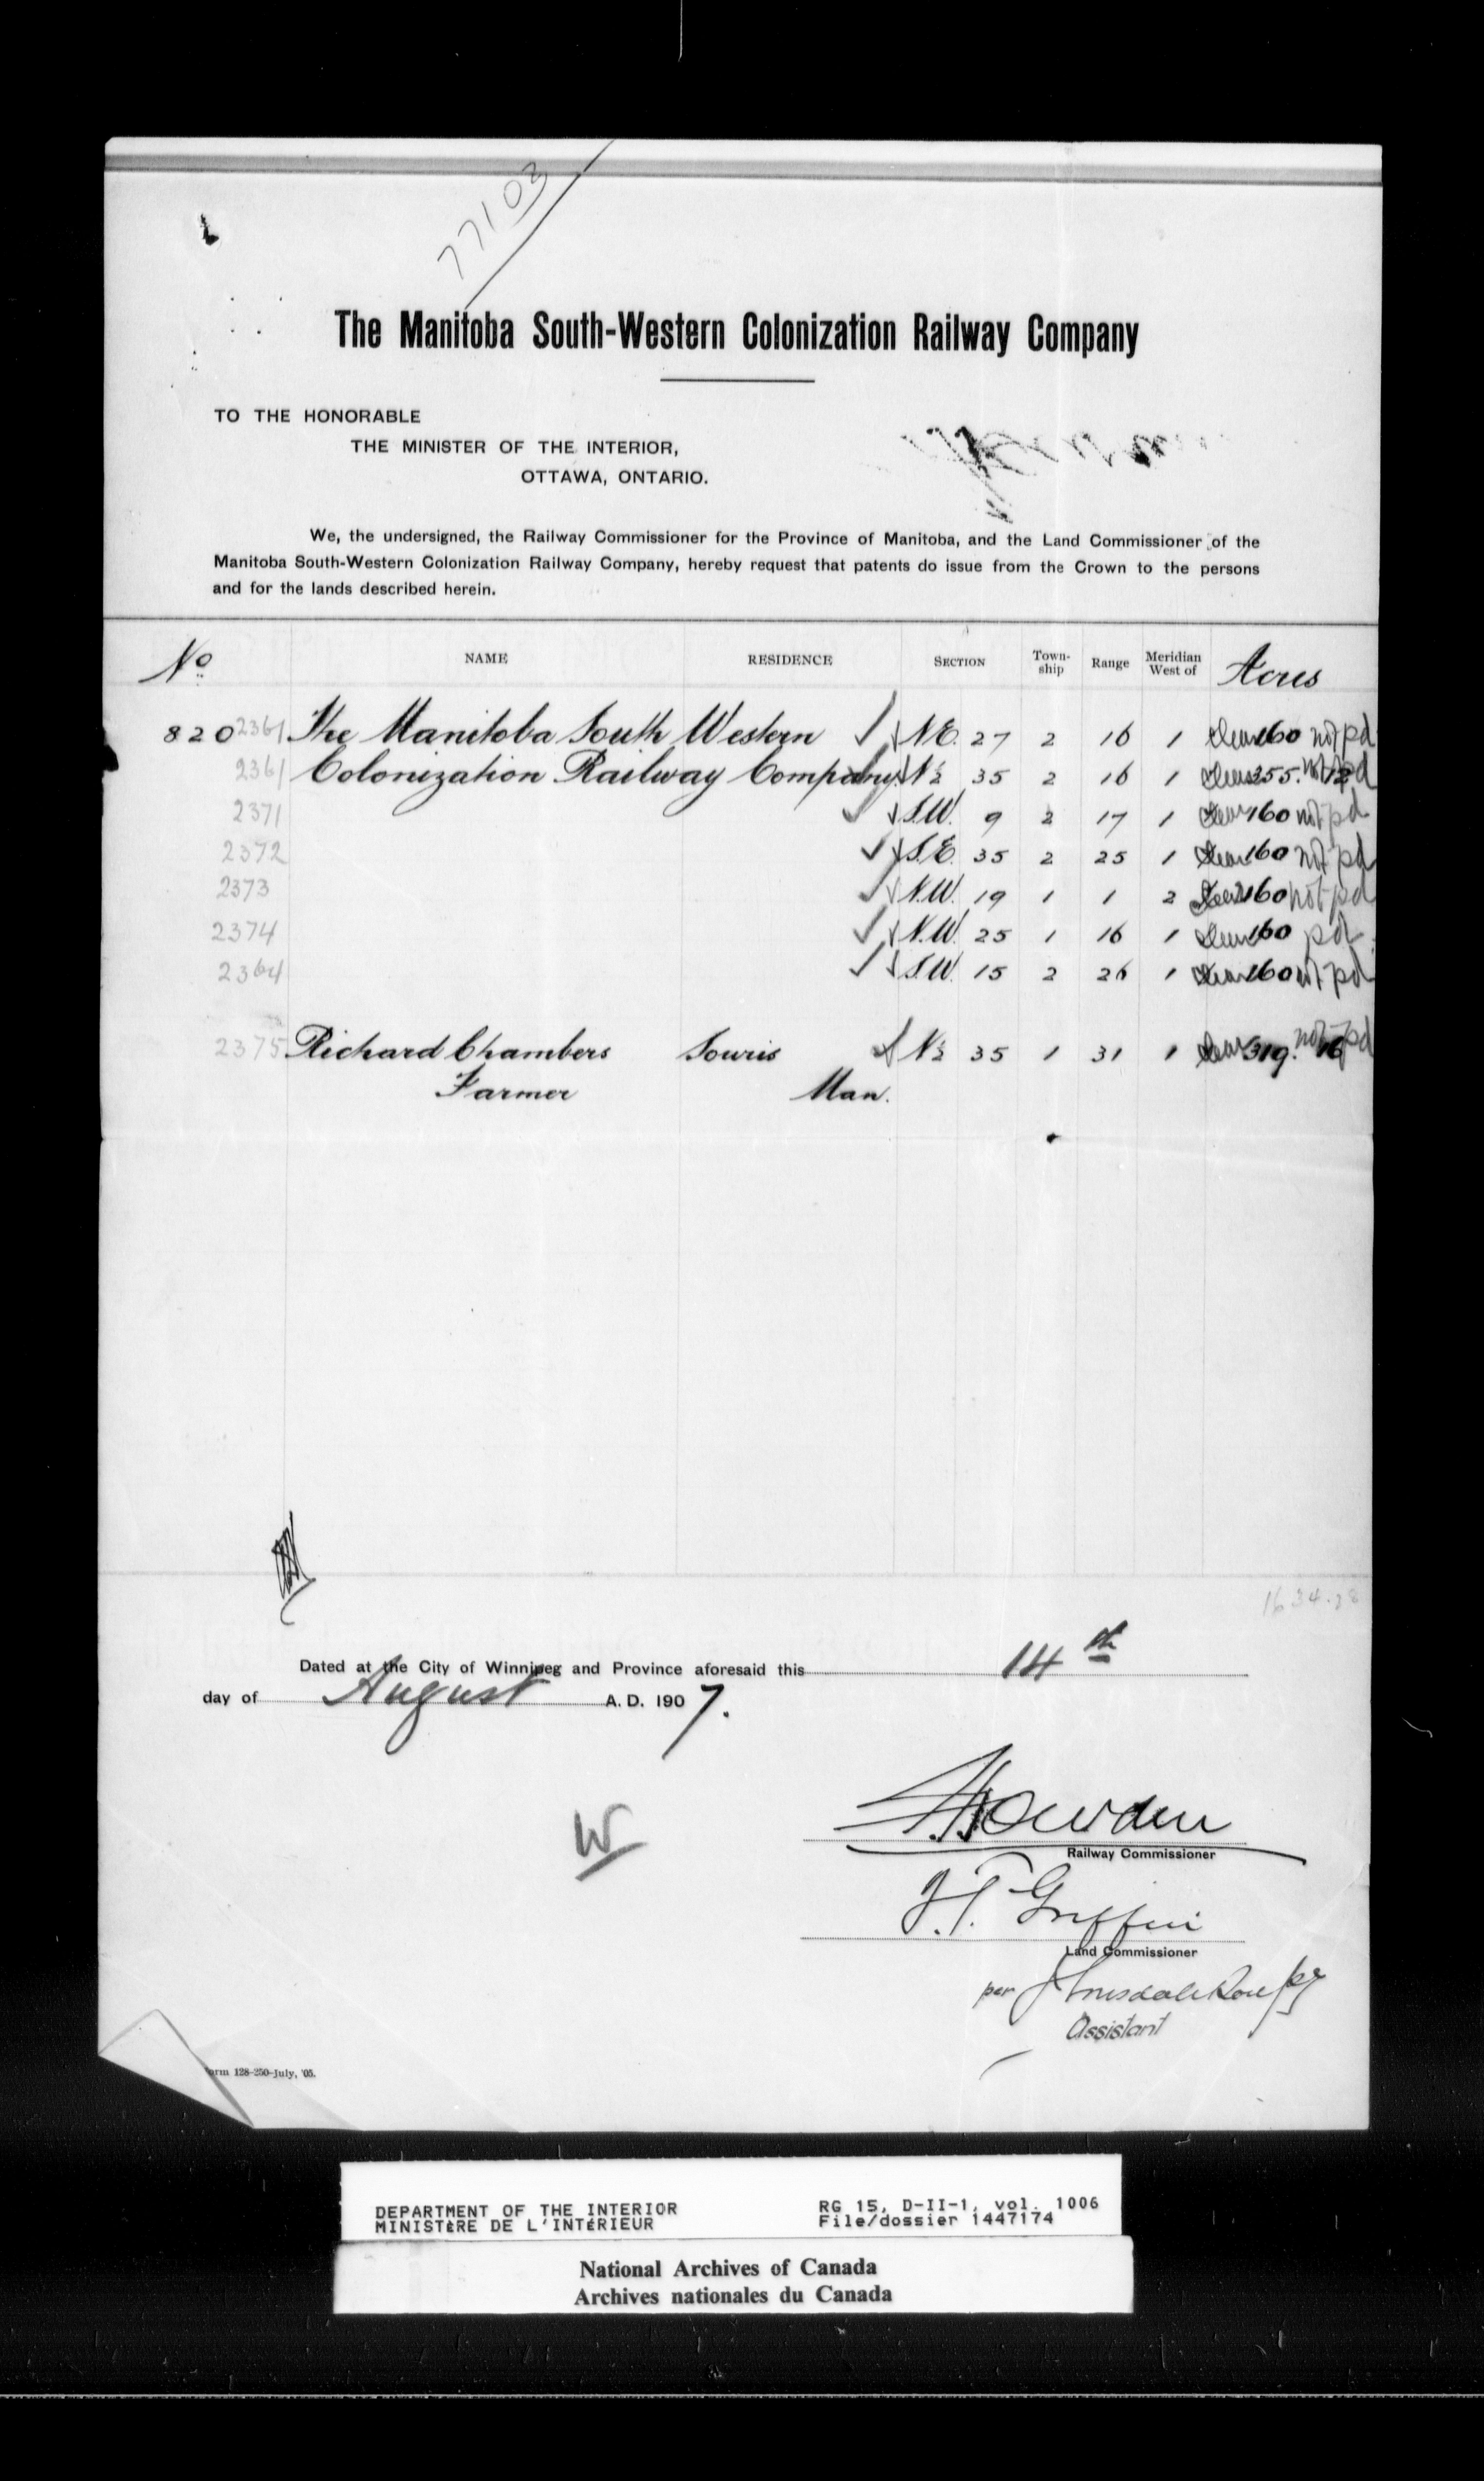 77103
The Manitoba South-Western Colonization Railway Company
TO THE HONORABLE
THE MINISTER OF THE INTERIOR,
OTTAWA, ONTARIO.
We, the undersigned, the Railway Commissioner for the Province of Manitoba, and the Land Commissioner of the
Manitoba South-Western Colonization Railway Company, hereby request that patents do issue from the Crown to the persons
and for the lands described herein.
No NAME RESIDENCE SECTION Town-ship Range Meridian West of Acres
820 2361 The Manitoba South Western N.E. 27 2 16 1 Clear 160 not pd
2361 Colonization Railway Company N½ 35 2 16 1 Clear 255.12 not pd
2371 S.W. 9 2 17 1 Clear 160 not pd
2372 S.E. 35 2 25 1 Clear 160 not pd
2373 N.W. 19 1 1 2 Clear 160 not pd
2374 N.W. 25 1 16 1 Clear 160 pd
2364 S.W. 15 2 26 1 Clear 160 not pd
2375 Richard Chambers Souris N½ 35 1 31 1 Clear 319.16 not pd
Farmer Man.
1634.28
Dated at the City of Winnipeg and Province aforesaid this 14th
day of August A. D. 1907.
W
Railway Commissioner
J.T. Griffin
Land Commissioner
per
Assistant
Form 128-250-July, '05.
DEPARTMENT OF THE INTERIOR RG 15, D-II-1, vol. 1006
MINISTÈRE DE L'INTÉRIEUR File/dossier 1447174
National Archives of Canada
Archives nationales du Canada